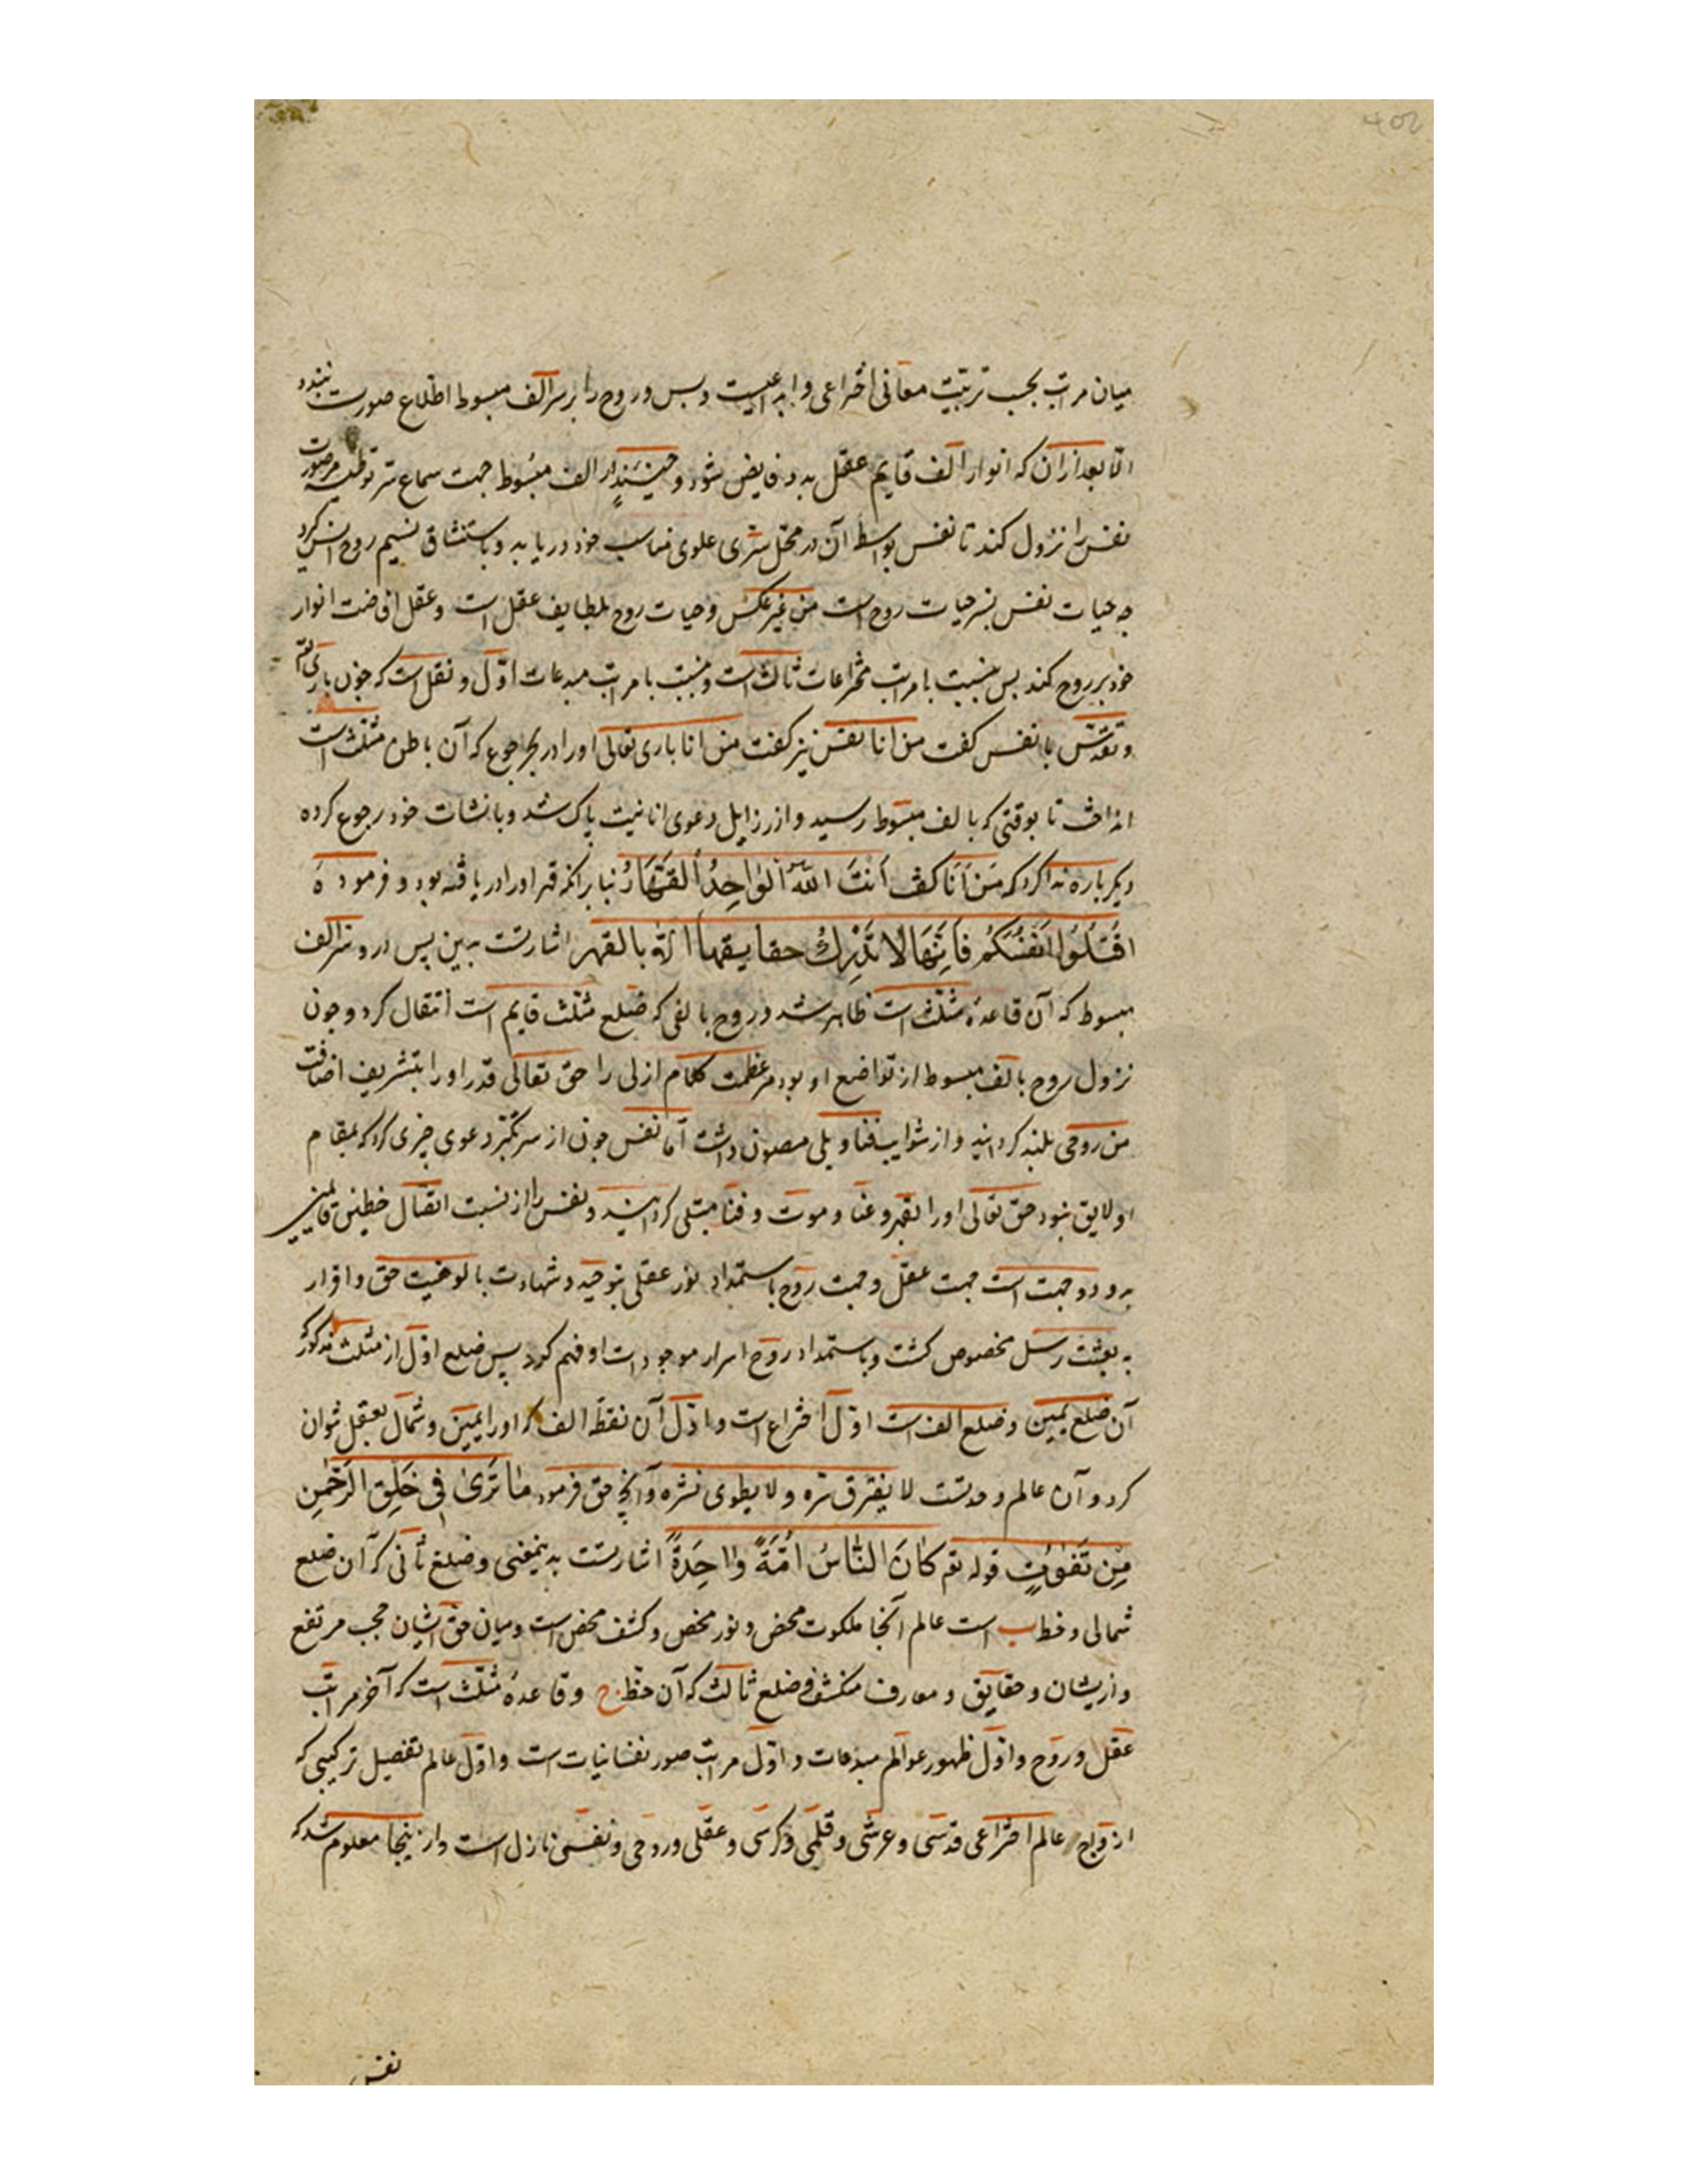 میان مراتب بحسب تربیت معانی اختراعی و ابداعیست و بس و روح را بر سر الف مبسوط اطلاع صورت نبندد
الا بعد از آن که انوار الف قایم عقل بدو فایض شود و حینئذ از الف مبسوط جهت سماع سر
نفس را نزول کند تا نفس بواسطه آن در محل سری علوی مناسب خود دریابد و باستنشاق نسیم روح
چه حیات نفس بسر حیات روح است من غیر عکس و حیات روح بلطایف عقل است و عقل افاضت انوار
خود بر روح کند بس بنسبت با مراتب مخترعات ثالث است و بنسبت با مراتب مبدعات اول و نقل است که چون باری
و تقدس با نفس کفت من انا نفس نیز کفت من انا باری تعالی او را در بحر جوع که آن باطن مثلث است
انداخت تا بوقتی که بالف مبسوط رسید و از رزایل دعوی انانیت پاک شد و بانشات خود رجوع کرده
دیکر باره ندا کرد که من انا کفت أنت الله الواحد القهار بنا بر انکه قهر او را دریافته بود و فرموده
اقتلوا انفسکم فانها لا تدرك حقایقها الا بالقهر اشارتست بدین پس ازو سر الف
مبسوط که آن قاعدهٔ مثلث است ظاهر شد و روح بالفی که ضلع مثلث قایم است انتقال کرد و چون
نزول روح بالف مبسوط از تواضع او بود مر عظمت کلام ازلی را حق تعالی قدر او را بتشریف اضافت
من روحی بلند کردانید و از شوایب فنا و بلی مصون داشت اما نفس چون از سر تکبر دعوی چیزی کرد که بمقام
او لایق نبود حق تعالی او را بفقر و غنا و موت و فنا مبتلی کردانید و نفس را از نسبت اتصال خطین
بدو دو جهت است جهت عقل و جهت روح باستمداد نور عقلی بتوحید و شهادت بالوهیت حق و اقرار
به بعثت رسل مخصوص کشت و باستمداد روح اسرار موجودات او فهم کرد پس ضلع اول از مثلث مذکور که
آن ضلع یمین و ضلع الف است اول اختراع است و اول آن نقطهٔ الف که او را یمین و شمال تعقل توان
کرد و آن عالم وحدتست لا یفترق سره و لا یطوی نشره و آنچ حق فرمود ما ترى في خلق الرحمن
من تفوت قوله تع كان الناس امة واحدة اشارتست بدینمعنی و ضلع ثانی که آن ضلع
شمالی و خط ب است عالم آنجا ملکوت محض و نور محض و کشف محض است و میان حق و ایشان حجب مرتفع
و ازیشان و حقایق و معارف منکشف و ضلع ثالث که آن خط ج و قاعدهٔ مثلث است که آخر مراتب
عقل و روح و اول ظهور عوالم مبدعات و اول مراتب صور نفسانیات است و اول عالم تفصیل ترکیبی که
ازواج عالم اختراعی قدسی و عرشی و قلمی و کرسی و عقلی و روحی و نفسی نازل است و از ینجا معلوم شد که
نفس